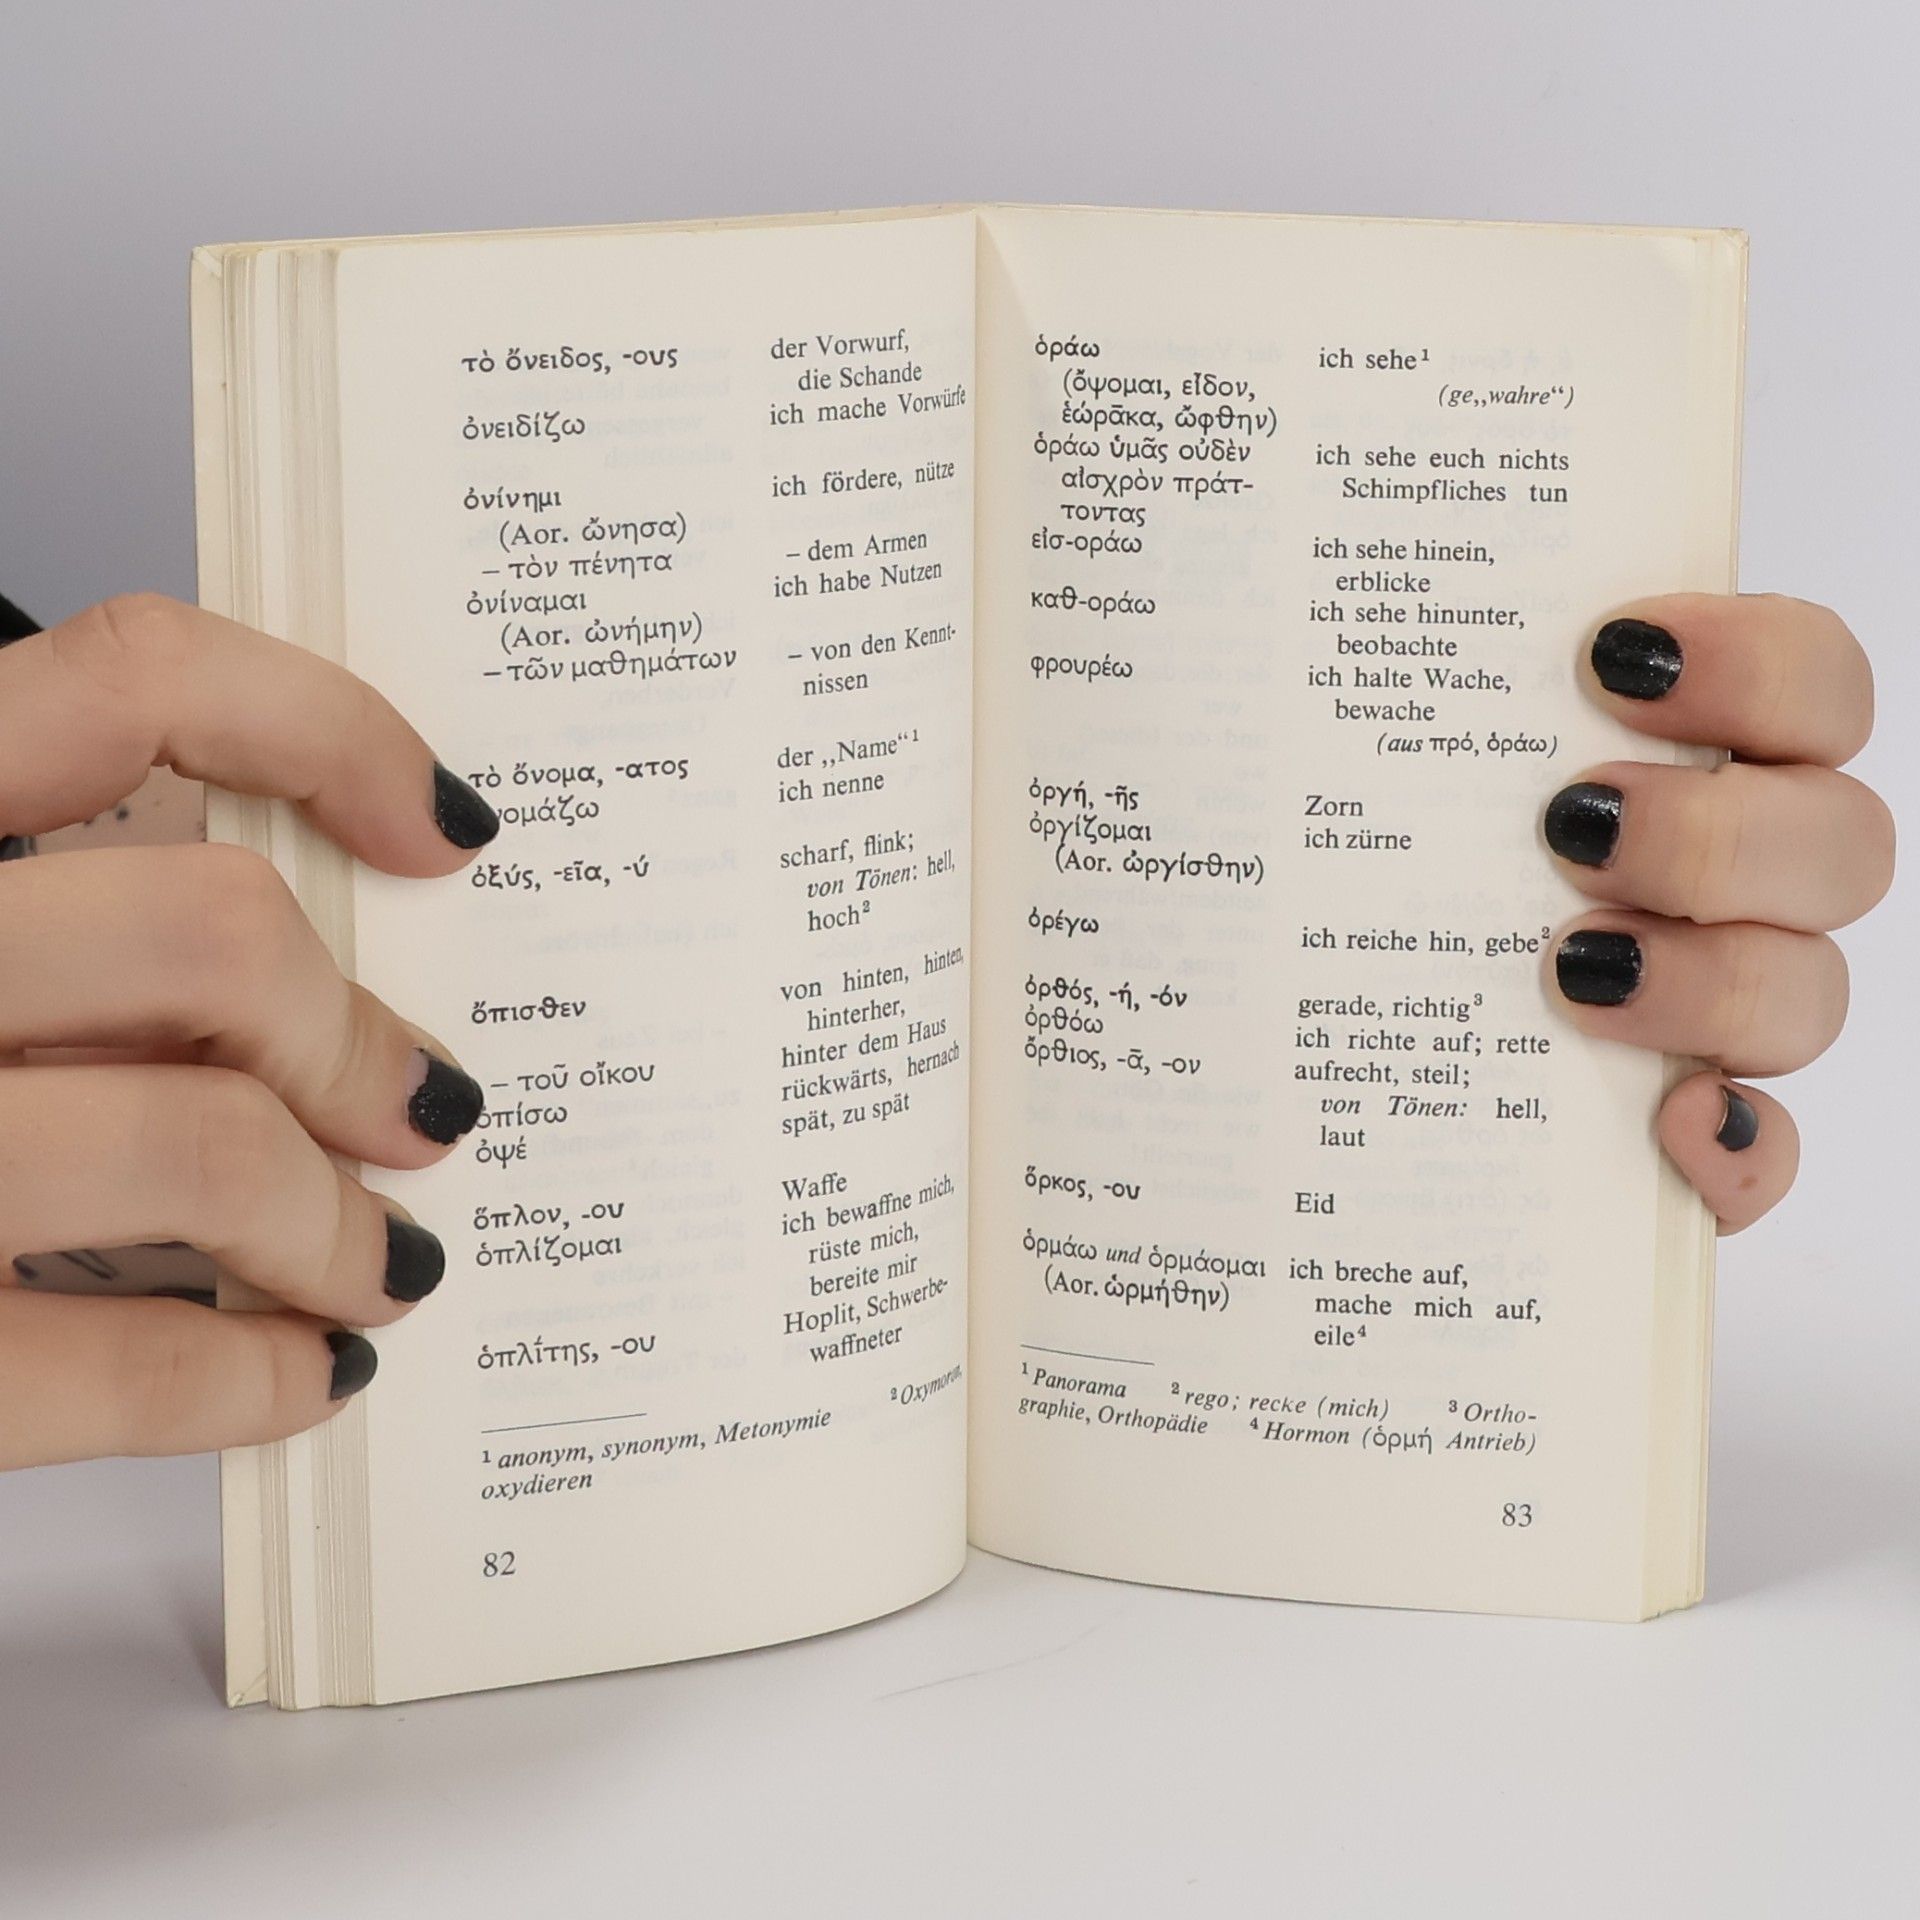 τὸ ὄνειδος, -ους der Vorwurf,
die Schande
ὀνειδίζω ich mache Vorwürfe
ὀνίνημι ich fördere, nütze
(Aor. ὤνησα)
– τὸν πένητα – dem Armen
ὀνίναμαι ich habe Nutzen
(Aor. ὠνήμην)
– τῶν μαθημάτων – von den Kennt-
nissen
τὸ ὄνομα, -ατος der „Name“¹
νομάζω ich nenne
ὀξύς, -εῖα, -ύ scharf, flink;
von Tönen: hell,
hoch²
ὄπισθεν von hinten, hinten,
hinterher,
– τοῦ οἴκου hinter dem Haus
ὀπίσω rückwärts, hernach
ὀψέ spät, zu spät
ὅπλον, -ου Waffe
ὁπλίζομαι ich bewaffne mich,
rüste mich,
bereite mir
ὁπλί̄της, -ου Hoplit, Schwerbe-
waffneter
¹ anonym, synonym, Metonymie ² Oxymoron,
oxydieren
82
ὁράω ich sehe¹
(ὄψομαι, εἶδον, (ge„wahre“)
ἑώρᾱκα, ὤφθην)
ὁράω ὑμᾶς οὐδὲν ich sehe euch nichts
αἰσχρὸν πράτ- Schimpfliches tun
τοντας
εἰσ-οράω ich sehe hinein,
erblicke
καθ-οράω ich sehe hinunter,
beobachte
φρουρέω ich halte Wache,
bewache
(aus πρό, ὁράω)
ὀργή, -ῆς Zorn
ὀργίζομαι ich zürne
(Aor. ὠργίσθην)
ὀρέγω ich reiche hin, gebe²
ὀρθός, -ή, -όν gerade, richtig³
ὀρθόω ich richte auf; rette
ὄρθιος, -ᾱ, -ον aufrecht, steil;
von Tönen: hell,
laut
ὅρκος, -ου Eid
ὁρμάω und ὁρμάομαι ich breche auf,
(Aor. ὡρμήθην) mache mich auf,
eile⁴
¹ Panorama ² rego; recke (mich) ³ Ortho-
graphie, Orthopädie ⁴ Hormon (ὁρμή Antrieb)
83